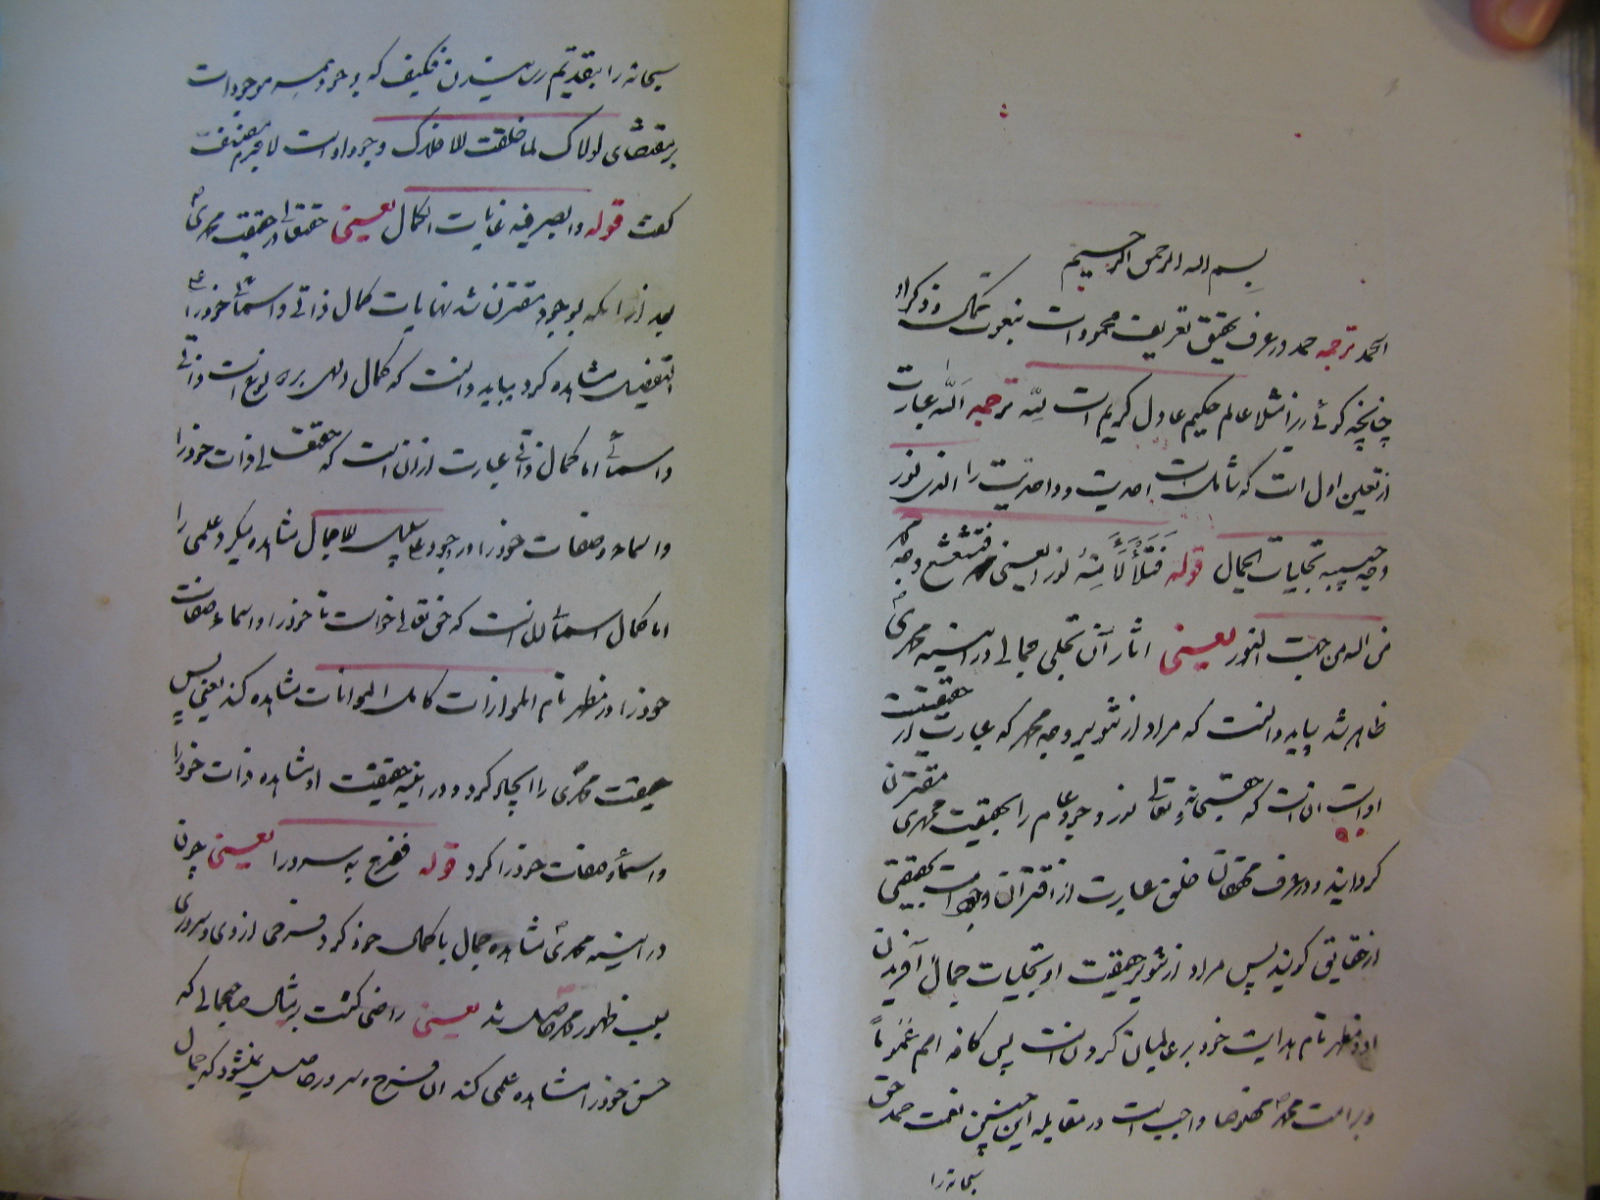 بسم الله الرحمن الرحیم
الحمد ترجمه حمد در عرف تحقیق تعریف محمود است بنعوت کمال و ذکر او
چنانچه گوئی زید مثلا عالم حکیم عادل کریم است لله ترجمه الله عبارت
از تعین اول است که شامل است احدیت و واحدیت را الذی نور
وجه حبیبه بتجلیات الجمال قوله فتلألأ منه نور یعنی فتشعشع وجه محمد
من الله من جهت النور یعنی اثار آن تجلی جمالی در آینه محمدی
ظاهر شد بباید دانست که مراد از تنویر وجه محمد که عبارت از حقیقت
اوست آن است که حق سبحانه و تعالی نور وجود عام را بحقیقت محمدی مقترن
گردانید و در عرف محققان خلق عبارت از اقتران وجود است بحقیقتی
از حقایق گویند پس مراد از تنویر حقیقت او بتجلیات جمال آفریدن
او و مظهر تام هدایت خود بر عالمیان کردن است پس کافه امم عموما
و بر امت محمد مخصوصا واجب است در مقابله این چنین نعمت حمد حق
سبحانه را
سبحانه را بتقدیم رسانیدن فکیف که وجود همه موجودات
بر مقتضای لولاک لما خلقت الافلاک وجود اوست لاجرم مصنف
گفت قوله وابصر فیه غایات الکمال یعنی حق تعالی در حقیقت محمدی
بعد از آنکه بوجود مقترن شد نهایات کمال ذاتی و اسمائی خود را
بتفصیل مشاهده کرد بباید دانست که کمال الهی بر دو نوع است ذاتی
و اسمائی اما کمال ذاتی عبارت از آن است که حق تعالی ذات خود را
و اسماء و صفات خود را در وجود علی سبیل الاجمال مشاهده میکرد علمی را
اما کمال اسمائی آن است که حق تعالی خواست تا خود را و اسماء و صفات
خود را در مظهر تام مشاهده کند یعنی پس
حقیقت محمدی را ایجاد کرد و در آینه حقیقت او مشاهده ذات خود را
و اسماء و صفات خود را کرد قوله ففرح به سرورا یعنی چون
در آینه محمدی مشاهده جمال با کمال خود کرد فرحی از وی و سروری
بسبب ظهور محمد حاصل شد یعنی راضی گشت بر مثال صاحب جمالی که
حسن خود را مشاهده علمی کند آن فرح و سرور حاصل نمیشود که جمال